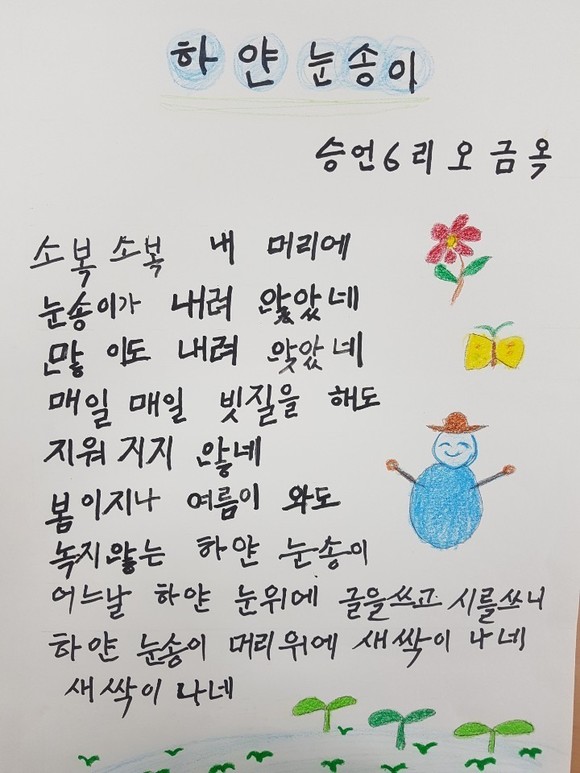 하얀 눈송이
승언6리 오금옥
소복 소복 내 머리에
눈송이가 내려 앉았네
많이도 내려 앉았네
매일 매일 빗질을 해도
지워지지 않네
봄이지나 여름이 와도
녹지않는 하얀 눈송이
어느날 하얀 눈위에 글을쓰고 시를쓰니
하얀 눈송이 머리위에 새싹이 나네
새싹이 나네